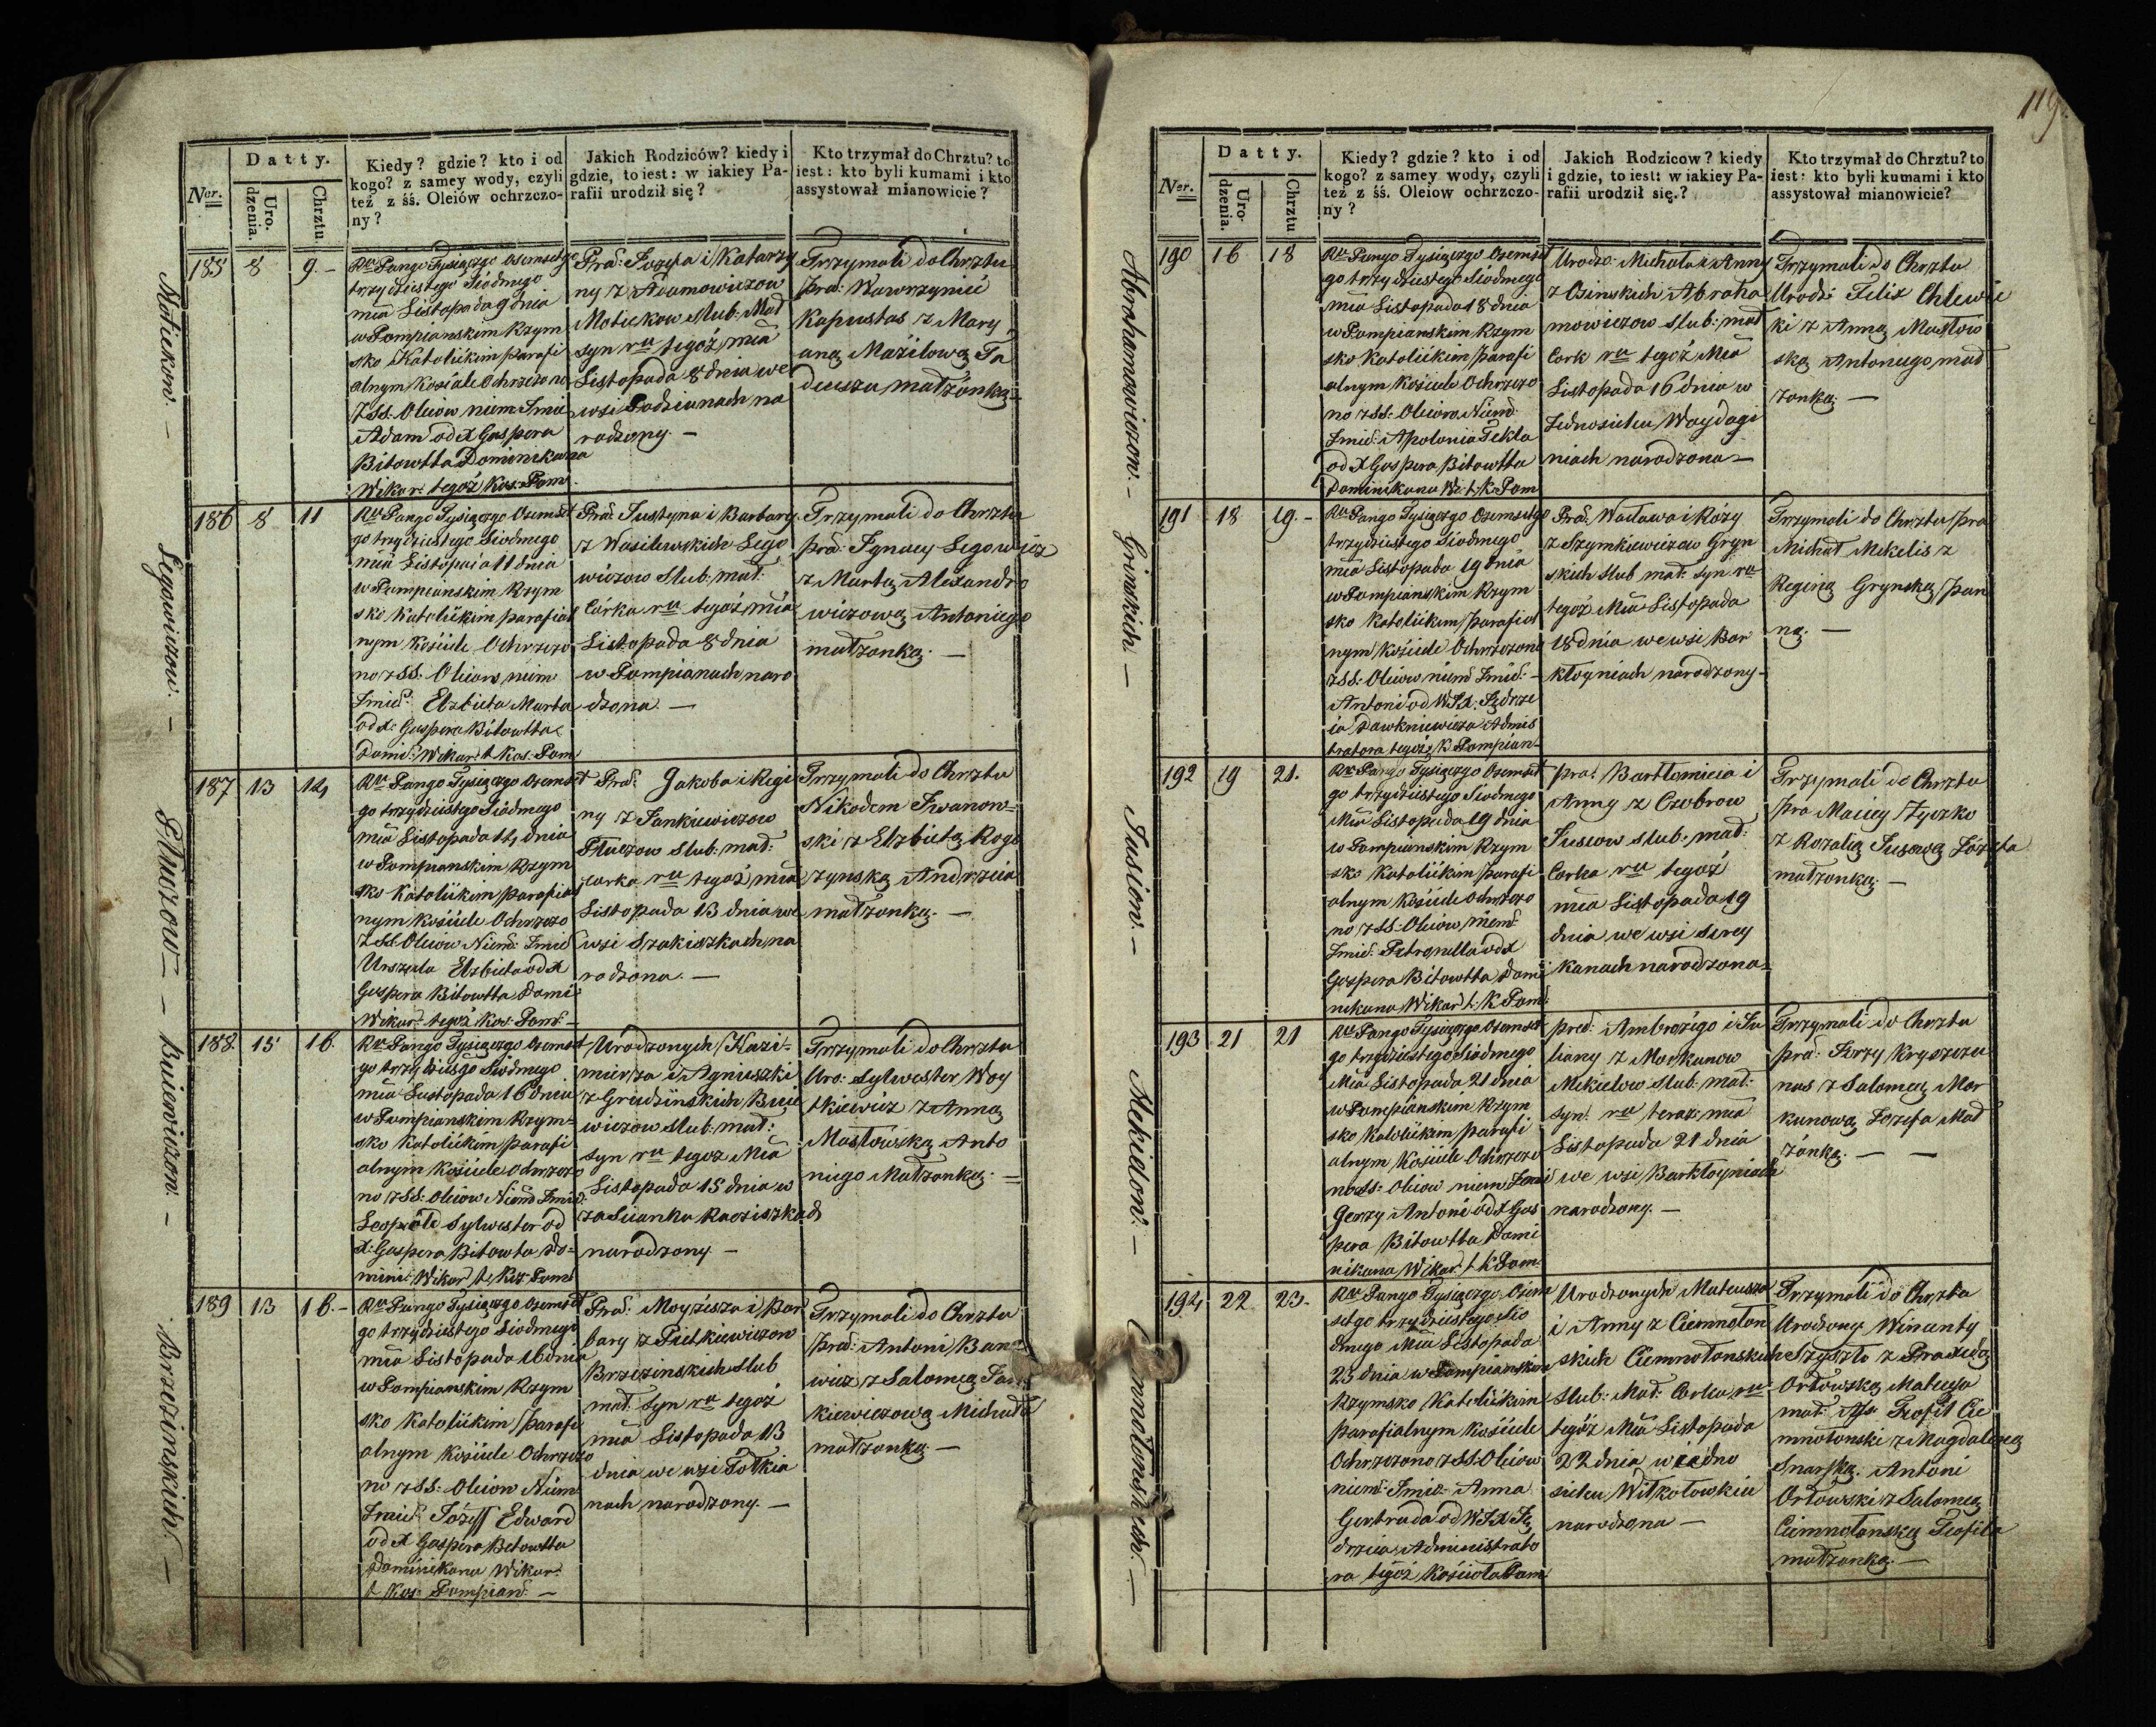 Ner.
Datty.
Uro-
dzenia.
Chrztu.
Kiedy? gdzie? kto i od
kogo? z samey wody, czyli
też z śś. Oleiów ochrzczo-
ny?
Jakich Rodziców? kiedy i
gdzie, to iest: w iakiey Pa-
rafii urodził się?
Kto trzymał do Chrztu? to
iest: kto byli kumami i kto
assystował mianowicie?
Motiekow. —
185
8
9. –
Ru Pango Tysiączgo Osemsetgo
trzydziestego Siódmego
mca Listopada 9 dnia
w Pompianskim Rzym
sko Katolickim parafi
alnym Kościele Ochrzczono
z SS. Oleiow niem: Imie
Adam od X Gaspera
Bitowtta Dominikana
Wikar: tegoż Kos: Pom.
Prac: Jozefa i Katarzy
ny z Adamowiczow
Motiekow slub: Mał
syn ru tegoż mca
Listopada 8 dnia we
wsi Podziunach na
rodzony. —
Trzymali do Chrztu
prac: Wawrzyniec
Kapustas z Mary
aną Mażilową Ta
deusza małżonką. –
Legowiczow. —
186
8
11
Ru Pango Tysiączgo Osemset
go trzydziestego Siodmego
mca Listopada 11 dnia
w Pompianskim Rzym
sko Katolickim parafial
nym Kościele Ochrzczo
no z SS. Oleiow niem
Imie: Elzbieta Marta
od X. Gaspera Bitowtta
Domi: Wikar: t. Kos. Pom
Prac: Justyna i Barbary
z Wasilewskich Lego
wiczow Slub: mał:
Córka ru tegoż mca
Listopada 8 dnia
w Pompianach naro
dzona. —
Trzymali do Chrztu
prac: Ignacy Legowicz
z Martą Alexandro
wiczową Antoniego
małżonką. —
Pluczow. —
187
13
14
Ru Pango Tysiączgo Osemset
go trzydziestego Siodmego
mca Listopada 14 dnia
w Pompianskim Rzym
sko Katolickim parafial
nym Kościele Ochrzczo
z SS. Oleiow Niem: Imie
Urszula Elzbieta od X
Gaspera Bitowtta Domi
Wikar: tegoż Kos: Pom. –
Prac: Jakoba i Regi
ny z Jankiewiczow
Pluczow slub: mał:
corka ru tegoż mca
Listopada 13 dnia we
wsi Szakiszkach na
rodzona. —
Trzymali do Chrztu
Nikodem Iwanow-
ski z Elzbietą Rogo
zynską Andrzeia
małżonką. —
Buiewiczow. —
188.
15
16.
Ru Pango Tysiączgo Osemset
go trzydziestgo Siódmego
mca Listopada 16 dnia
w Pompianskim Rzym-
sko Katolickim parafi
alnym Kościele Ochrzczo
no z SS. Oleiow Niem: Imie:
Leopold Sylwester od
X. Gaspera Bitowta Do-
mini: Wikar t. Kos: Pom:
Urodzonych Kazi-
mierza i Agnieszki
z Grudzinskich Buie
wiczow slub: mał:
syn ru tegoż Mca
Listopada 15 dnia w
zascianku Raciszkach
narodzony. —
Trzymali do Chrztu
Uro: Sylwester Woy
tkiewicz z Anną
Masłowską Anto
niego Małżonką. =
Brzezinskich. —
189
13
16. –
Ru Pango Tysiączgo Osemset
go trzydziestego Siodmego
mca Listopada 16 dnia
w Pompianskim Rzym
sko Katolickim parafi
alnym Kościele Ochrzczo
no z SS: Oleiow Niem:
Imie: Józeff Edward
od X Gaspera Bitowtta
Dominikana Wikar:
t. Kos: Pompian: —
Prac: Moyżisza i Bar
bary z Pietkiewiczow
Brzezinskich slub
mał: syn ru tegoż
mca Listopada 13
dnia we wsi Totkia
nach narodzony. —
Trzymali do Chrztu
Prac: Antoni
wicz z Salomeą
kiewiczową Michała
małżonką. —
119.
Ner.
Datty.
Uro-
dzenia.
Chrztu
Kiedy? gdzie? kto i od
kogo? z samey wody, czyli
też z śś. Oleiow ochrzczo-
ny?
Jakich Rodzicow? kiedy
i gdzie, to iest: w iakiey Pa-
rafii urodził się.?
Kto trzymał do Chrztu? to
iest: kto byli kumami i kto
assystował mianowicie?
Abrahamowiczow. –
190
16
18
Ru Pango Tysiączgo Osemset
go trzydziestego Siodmego
mca Listopada 18 dnia
w Pompianskim Rzym
sko Katolickim parafi
alnym Kościele Ochrzczo
no z SS: Oleiow, Niem:
Imie: Apolonia Tekla
od X Gaspera Bitowtta
Dominikana Wi: t. K. Pom
Urodzo: Michała i Anny
z Osinskich Abraha
mowiczow slub: mał
Cork ru tegoż Mca
Listopada 16 dnia w
Jednosielu Woydagi
niach narodzona —
Trzymali do Chrztu
Urodz: Felix Chlewic
ki z Anną Masłow
ską Antoniego mał
żonką. —
Grinskich. —
191
18
19. –
Ru Pango Tysiączgo Osemsetgo
trzydziestego Siodmego
mca Listopada 19 dnia
w Pompianskim Rzym
sko Katolickim parafial
nym Kościele Ochrzczono
z SS: Oleiow niem: Imie: –
Antoni od W J X. Jędrze
ia Dawkniewicza Admis
tratora tegoż K. Pompian. –
Prac: Wacława i Róży
z Szymkiewiczow Gryn
skich slub mał: syn ru
tegoż Mca Listopada
18 dnia we wsi Bar
kłoyniach narodzony –
Trzymali do Chrztu pra
Michał Mekelis z
Reginą Grynską pan
ną. —
Jusiow. —
192
19
21.
Ru Pango Tysiączgo Osemset
go trzydziestego Siodmego
Mca Listopada 19 dnia
w Pompianskim Rzym
sko Katolickim parafi
alnym Kościele Ochrzczo
no z SS: Oleiow niem:
Imie: Petronella od X
Gaspera Bitowtta Domi
nikana Wikar: t. K. Pom:
pra: Bartłomieia i
Anny z Czobrow
Jusiow slub: mał:
Corka ru tegoż
mca Listopada 19
dnia we wsi Surey
kanach narodzona –
Trzymali do Chrztu
pra Maciey Życzko
z Rozalią Jusową Józefa
małżonką. —
Mekielow. —
193
21
21
Ru Pango Tysiączgo Osemset
go trzydziestego Siodmego
Mca Listopada 21 dnia
w Pompianskim Rzym
sko Katolickim parafi
alnym Kościele Ochrzczo
no z SS: Oleiow niem: Imie
Jerzy Antoni od X Gas
pera Bitowtta Domi
nikana Wikar: t. K Pom
prac: Ambrożego i Ju
lianny z Morkunow
Mekielow slub: mał:
syn: ru teraz: mca
Listopada 21 dnia
we wsi Barkłoyniach
narodzony. —
Trzymali do Chrztu
prac: Jerzy Kryszczu
nas z Salomeą Mor
kunową Jozefa Mał
żonką. — —
Ciemnołonskich. —
194
22
23.
Ru Pango Tysiączgo Osiem
setgo trzydziestego Sio
dmego Mca Listopada
23 dnia w Pompianskim
Rzymsko Katolickim
parafialnym Kościele
Ochrzczono z SS. Oleiow
niem: Imie: Anna
Gertruda od W J X Ję
drzeia Administrato
ra tegoż Kościoła Pom
Urodzonych Mateusza
i Anny z Ciemnołon
skich Ciemnołonskich
Slub: Mał: Corka ru
tegoż Mca Listopada
22 dnia w iedno
sielu Witkołowkiu
narodzona —
Trzymali do Chrztu
Urodzony Wincenty
Szyszło z Praxedą
Orłowską Mateusza
mał: Ass: Teofil Cie
mnołonski z Magdaleną
Snarską. Antoni
Orłowski z Salomeą
Ciemnołonską Teofila
małżonką. —